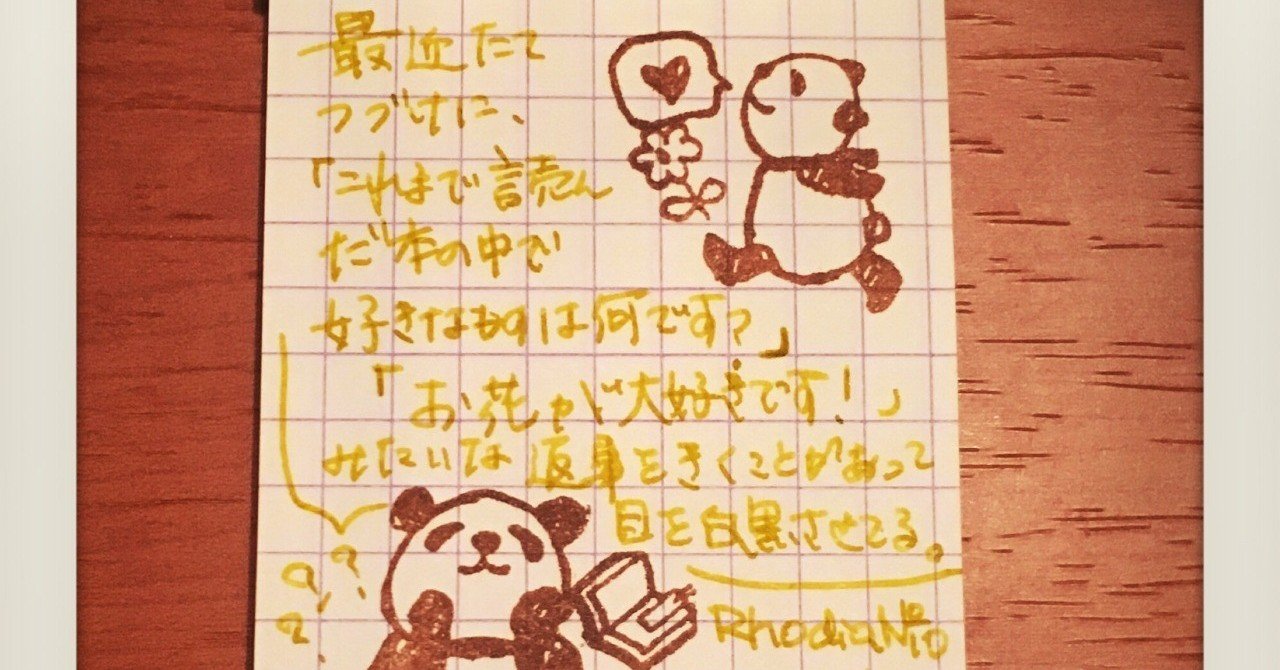 最近たて
つづけに、
「これまで読ん
だ本の中で
好きなものは何です?」
「お花が大好きです!」
みたいな返事をきくことがあって
目を白黒させてる。
? ? ?
Rhodia No10